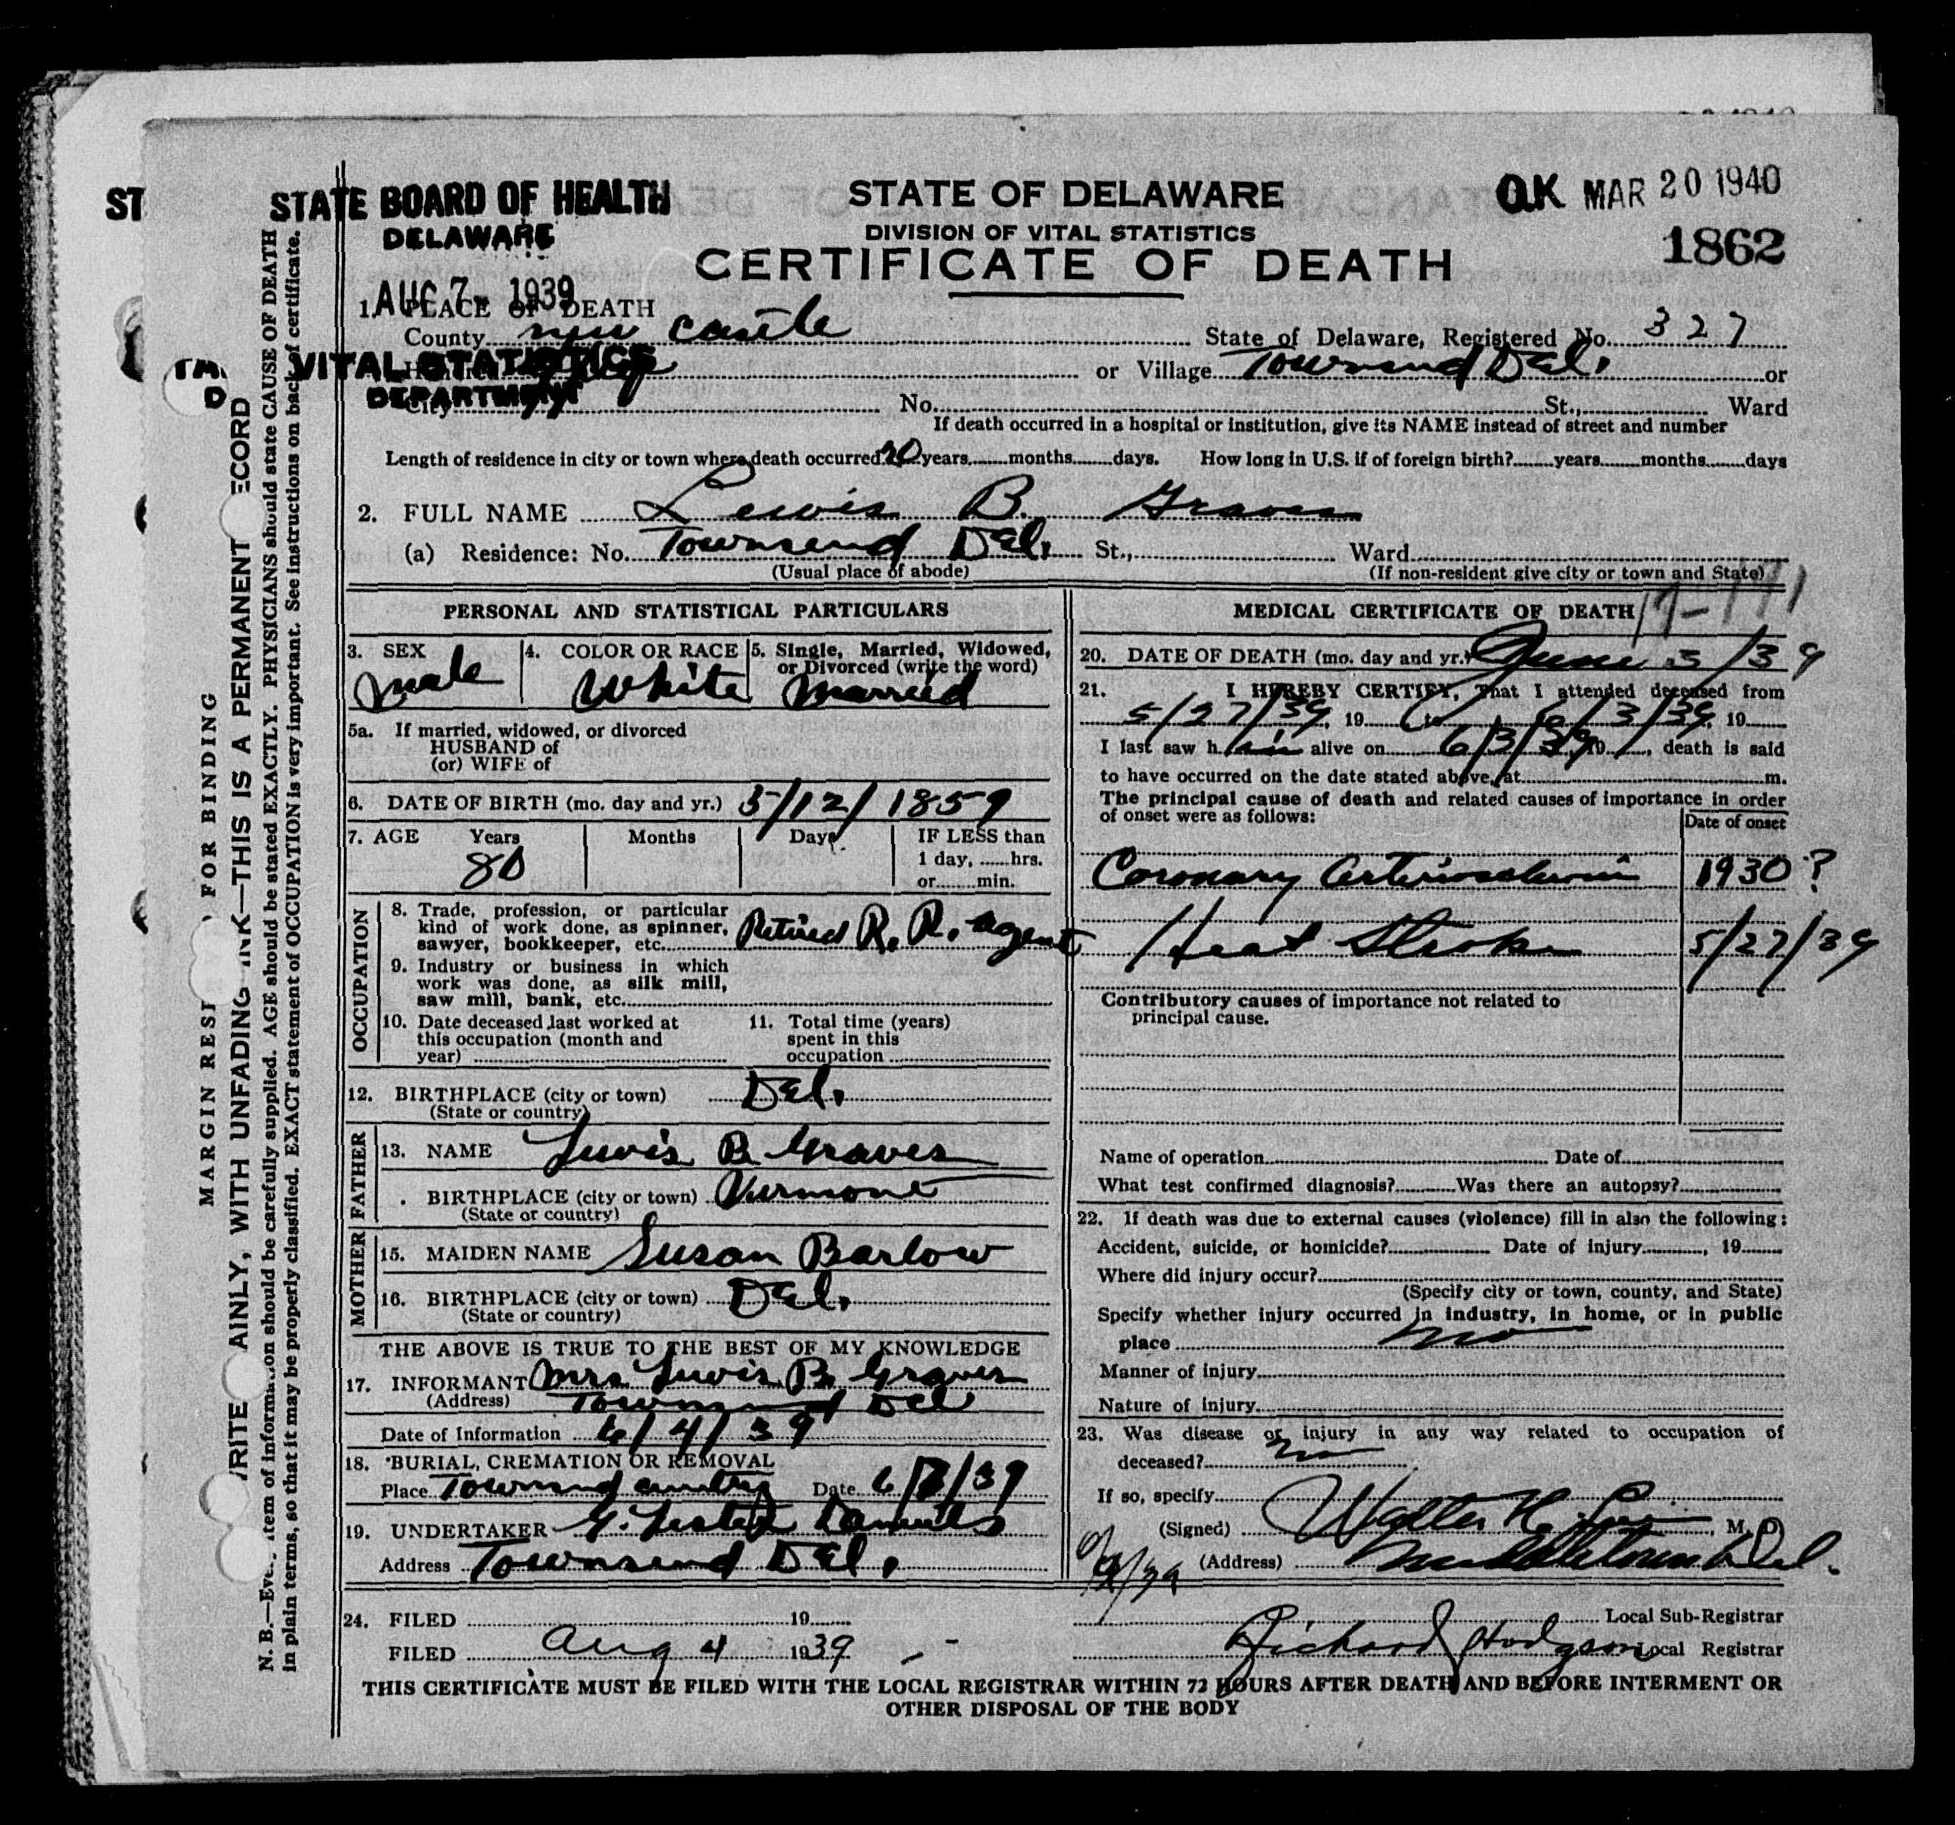 STATE BOARD OF HEALTH
DELAWARE
AUG 7 - 1939
VITAL STATISTICS
DEPARTMENT
STATE OF DELAWARE
DIVISION OF VITAL STATISTICS
CERTIFICATE OF DEATH
O.K MAR 20 1940
1862
1. PLACE OF DEATH
County New Castle State of Delaware, Registered No. 327
or Village Townsend Del. or
City No. St., Ward
If death occurred in a hospital or institution, give its NAME instead of street and number
Length of residence in city or town where death occurred years months days. How long in U.S. if of foreign birth? years months days
2. FULL NAME Lewis B. Graves
(a) Residence: No. Townsend Del. St., Ward
(Usual place of abode) (If non-resident give city or town and State)
PERSONAL AND STATISTICAL PARTICULARS
3. SEX
male
4. COLOR OR RACE
White
5. Single, Married, Widowed,
or Divorced (write the word)
Married
5a. If married, widowed, or divorced
HUSBAND of
(or) WIFE of
6. DATE OF BIRTH (mo. day and yr.) 5/12/1859
7. AGE Years Months Days IF LESS than
80 1 day, hrs.
or min.
OCCUPATION
8. Trade, profession, or particular
kind of work done, as spinner,
sawyer, bookkeeper, etc. Retired R. R. agent
9. Industry or business in which
work was done, as silk mill,
saw mill, bank, etc.
10. Date deceased last worked at
this occupation (month and
year)
11. Total time (years)
spent in this
occupation
12. BIRTHPLACE (city or town) Del.
(State or country)
FATHER
13. NAME Lewis B. Graves
. BIRTHPLACE (city or town) Vermont
(State or country)
MOTHER
15. MAIDEN NAME Susan Barlow
16. BIRTHPLACE (city or town) Del.
(State or country)
THE ABOVE IS TRUE TO THE BEST OF MY KNOWLEDGE
17. INFORMANT Mrs. Lewis B. Graves
(Address) Townsend Del
Date of Information 6/4/39
18. BURIAL, CREMATION OR REMOVAL
Place Townsend Date 6/ /39
19. UNDERTAKER G. Lester Daniels
Address Townsend Del.
MEDICAL CERTIFICATE OF DEATH
20. DATE OF DEATH (mo. day and yr.) June 3/39
21. I HEREBY CERTIFY, That I attended deceased from
5/27/39, 19 to 6/3/39, 19
I last saw h im alive on 6/3/39, 19 , death is said
to have occurred on the date stated above, at m.
The principal cause of death and related causes of importance in order
of onset were as follows:
Date of onset
Coronary Arteriosclerosis 1930?
Heat Stroke 5/27/39
Contributory causes of importance not related to
principal cause.
Name of operation Date of
What test confirmed diagnosis? Was there an autopsy?
22. If death was due to external causes (violence) fill in also the following:
Accident, suicide, or homicide? Date of injury , 19
Where did injury occur?
(Specify city or town, county, and State)
Specify whether injury occurred in industry, in home, or in public
place no
Manner of injury
Nature of injury
23. Was disease or injury in any way related to occupation of
deceased? no
If so, specify
(Signed) Walter , M. D.
(Address) Middletown Del.
24. FILED 19 Local Sub-Registrar
FILED Aug 4 1939 Richard Hodgson Local Registrar
THIS CERTIFICATE MUST BE FILED WITH THE LOCAL REGISTRAR WITHIN 72 HOURS AFTER DEATH AND BEFORE INTERMENT OR
OTHER DISPOSAL OF THE BODY
MARGIN RES FOR BINDING
WRITE AINLY, WITH UNFADING INK—THIS IS A PERMANENT ECORD
N. B.—Every item of information should be carefully supplied. AGE should be stated EXACTLY. PHYSICIANS should state CAUSE OF DEATH
in plain terms, so that it may be properly classified. EXACT statement of OCCUPATION is very important. See instructions on back of certificate.